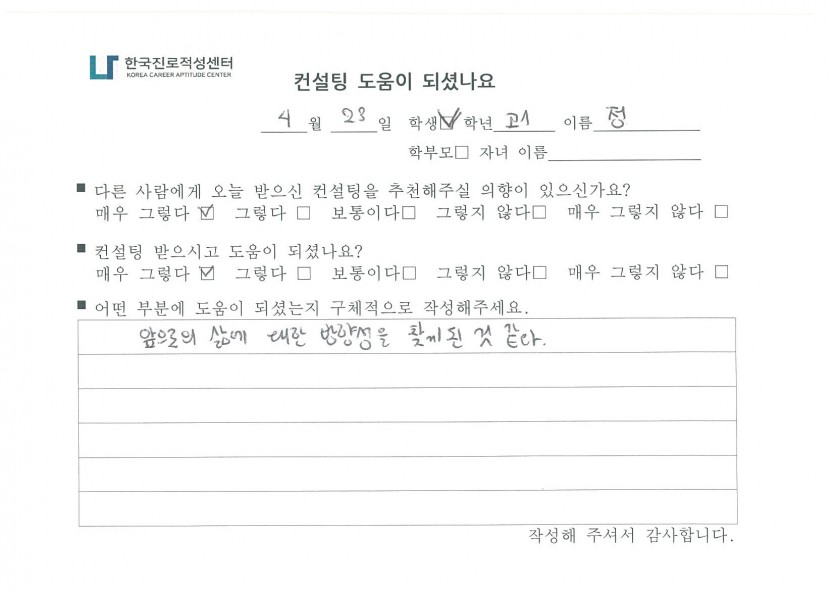 한국진로적성센터
KOREA CAREER APTITUDE CENTER
컨설팅 도움이 되셨나요
4 월 23 일 학생☑ 학년 고1 이름 정
학부모□ 자녀 이름
■ 다른 사람에게 오늘 받으신 컨설팅을 추천해주실 의향이 있으신가요?
매우 그렇다 ☑ 그렇다 □ 보통이다□ 그렇지 않다□ 매우 그렇지 않다 □
■ 컨설팅 받으시고 도움이 되셨나요?
매우 그렇다 ☑ 그렇다 □ 보통이다□ 그렇지 않다□ 매우 그렇지 않다 □
■ 어떤 부분에 도움이 되셨는지 구체적으로 작성해주세요.
앞으로의 삶에 대한 방향성을 찾게된 것 같다.
작성해 주셔서 감사합니다.